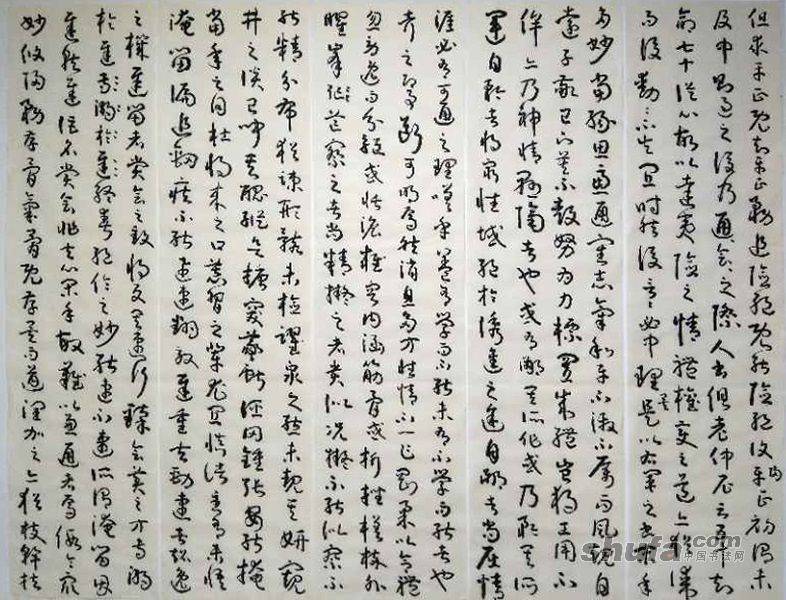 但求平正既知平正務追險絕既能險絕復歸平正初謂未
及中則過之後乃通會之際人書俱老仲尼云五十知
命七十從心故以達夷險之情體權變之道亦猶謀
而後動動不失宜時然後言言必中理矣是以右軍之書末年
多妙當緣思慮通審志氣和平不激不厲而風規自
遠子敬已下莫不鼓努為力標置成體豈獨工用不
侔亦乃神情懸隔者也或有鄙其所作或乃矜其所
運自矜者將窮性域絕於誘進之途自鄙者尚屈情
涯必有可通之理嗟乎蓋有學而不能未有不學而能者也
考之即事斷可明焉然消息多方性情不一乍剛柔以合體
忽勞逸而分驅或恬澹雍容內涵筋骨或折挫槎枿外
曜鋒芒察之者尚精擬之者貴似況擬不能似察不
能精分布猶疏形骸未檢躍泉之態未睹其妍窺
井之談已聞其醜縱欲唐突羲獻誣罔鍾張安能掩
當年之目杜將來之口慕習之輩尤宜慎諸至有未悟
淹留偏追勁疾不能迅速翻效遲重夫勁速者超逸
之機遲留者賞會之致將反其速行臻會美之方專溺
於遲終爽絕倫之妙能速不速所謂淹留因
遲就遲詎名賞會非其心閑手敏難以兼通者焉假令眾
妙攸歸務存骨氣骨既存矣而遒潤加之亦猶枝幹扶
shufa.com
中国书法网